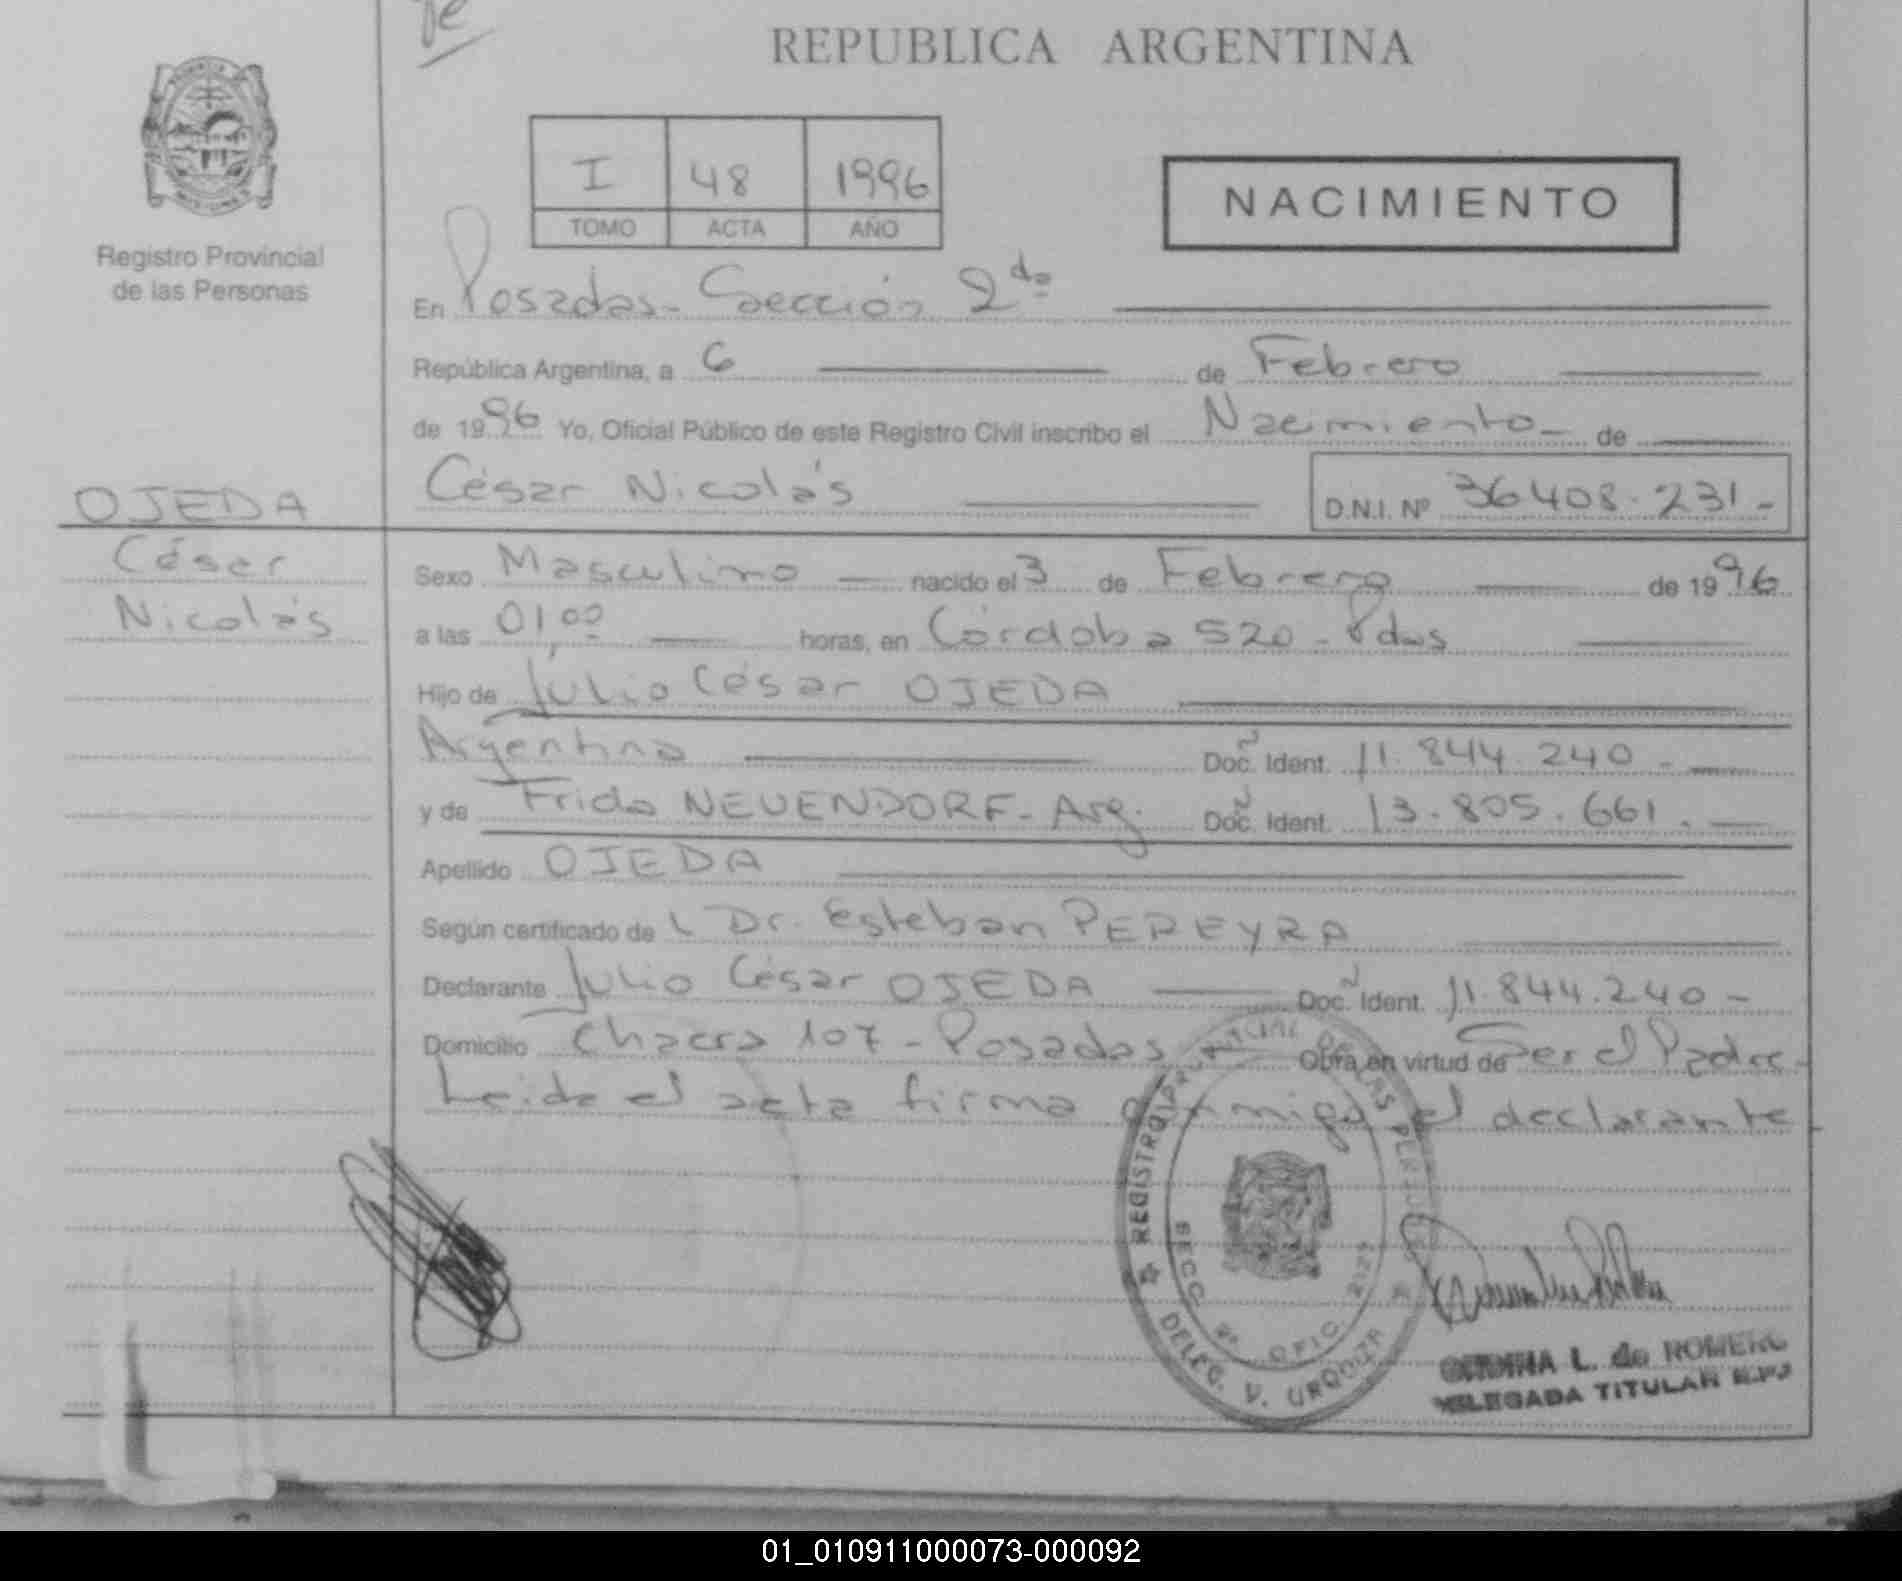 REPUBLICA ARGENTINA
Registro Provincial
de las Personas
I 48 1996
TOMO ACTA AÑO
NACIMIENTO
En Posadas - Sección 2da
República Argentina, a 6 de Febrero
de 1996 Yo, Oficial Público de este Registro Civil inscribo el Nacimiento - de
César Nicolás D.N.I. Nº 36408.231-
OJEDA
César
Nicolás
Sexo Masculino nacido el 3 de Febrero de 1996
a las 01,00 horas, en Córdoba 520 - Pdas
Hijo de Julio César OJEDA
Argentina Doc. Ident. 11.844.240-
y de Frida NEUENDORF - Arg. Doc. Ident. 13.805.661.
Apellido OJEDA
Según certificado de L Dr. Esteban PEREYRA
Declarante Julio César OJEDA Doc. Ident. 11.844.240-
Domicilio Chacra 107 - Posadas Obra en virtud de Ser el Padre-
Leida el acta firma conmigo el declarante
REGISTRO DE LAS PERSONAS
SECC. 2ª OFIC.
DELEG. V. URQUIZA
L. de ROMERO
DELEGADA TITULAR R.P.P
01_010911000073-000092